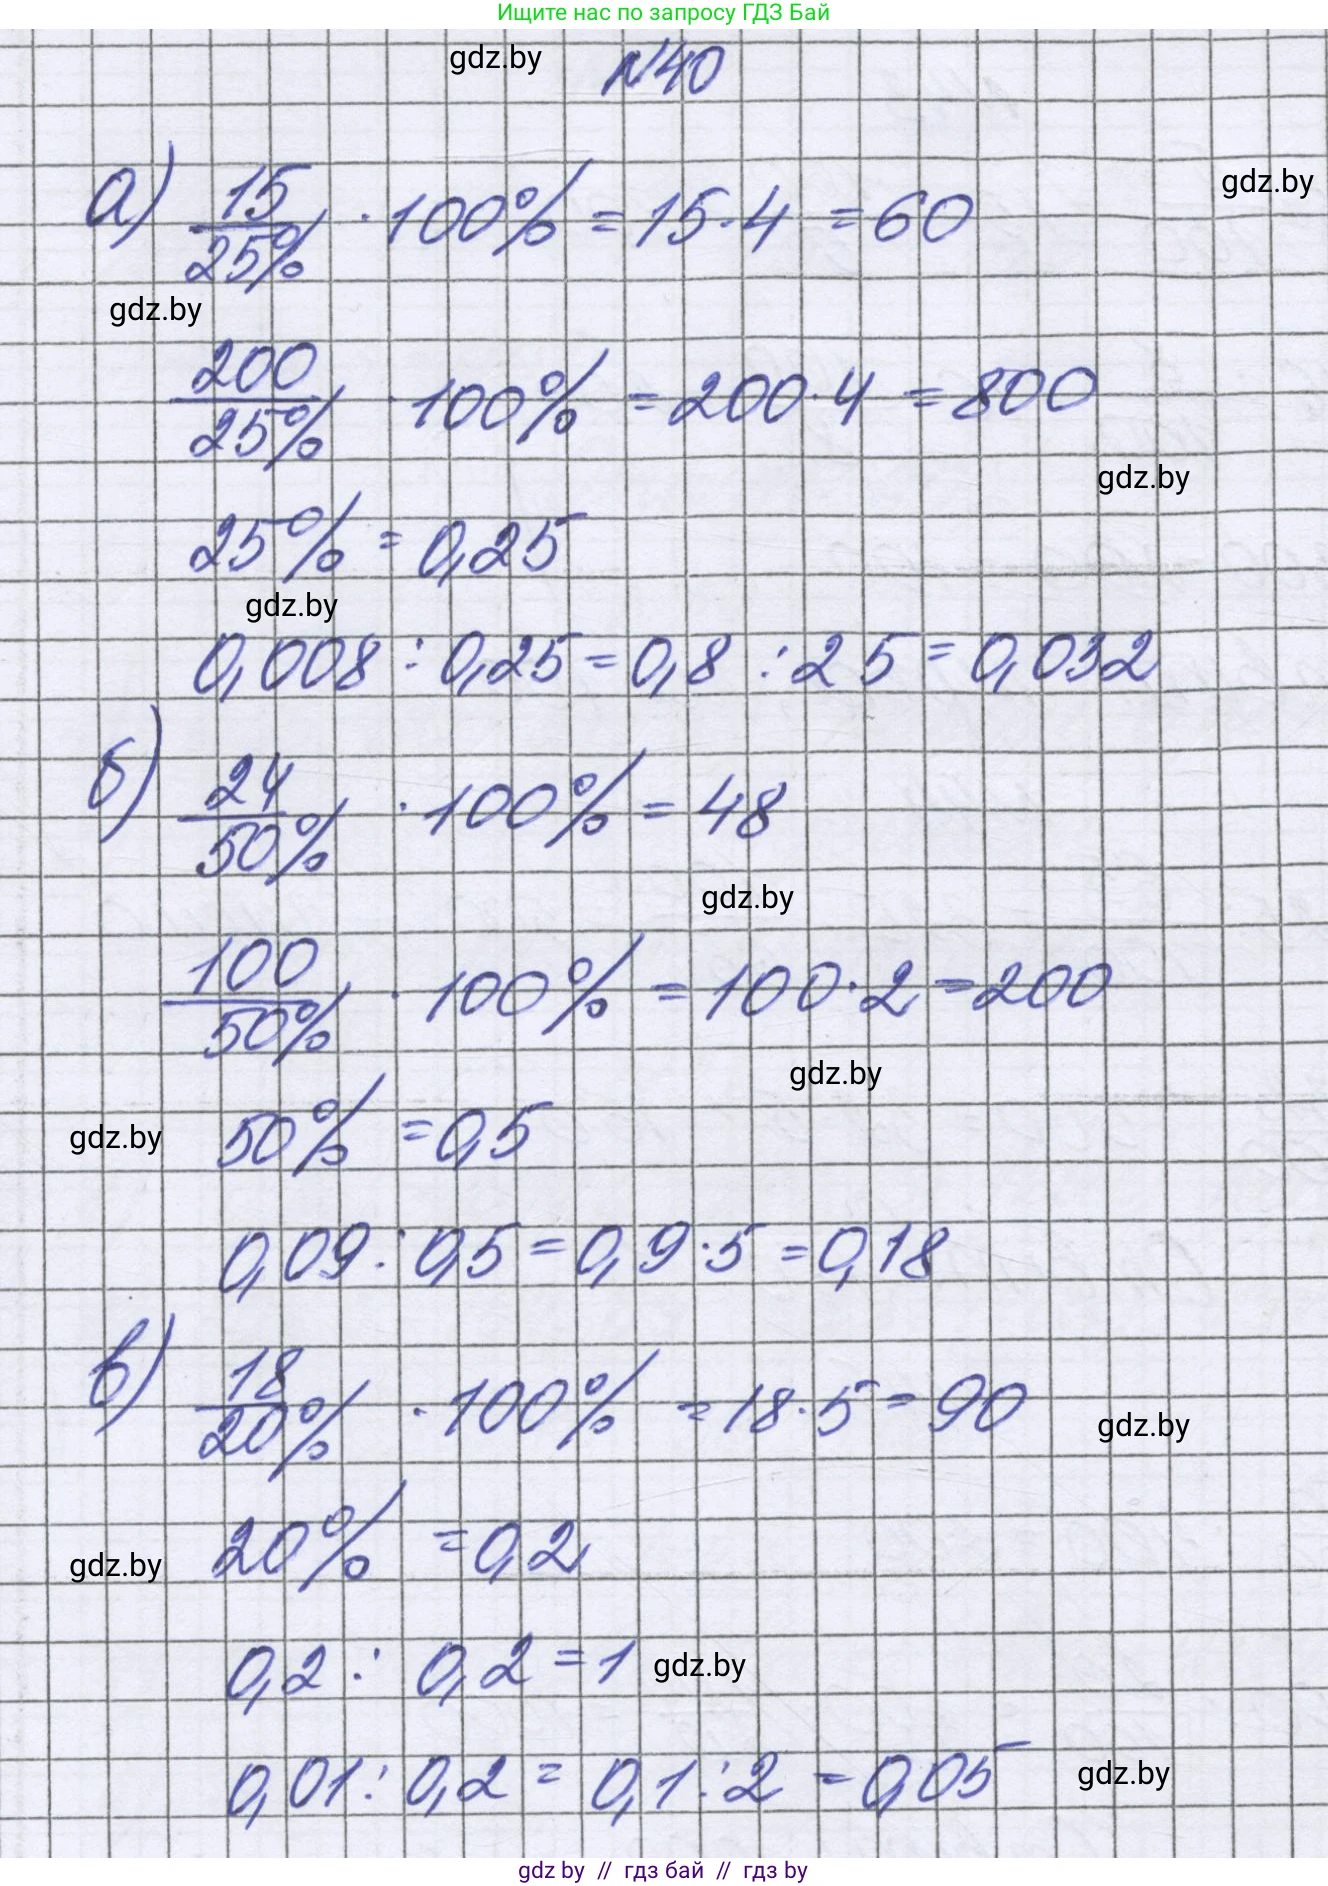 Ищите нас по запросу ГДЗ Бай
gdz.by
№40
gdz.by
а) 15/25% · 100% = 15·4 = 60
gdz.by
200/25% · 100% = 200·4 = 800
gdz.by
25% = 0,25
gdz.by
0,008 : 0,25 = 0,8 : 25 = 0,032
б) 24/50% · 100% = 48
gdz.by
100/50% · 100% = 100·2 = 200
gdz.by
50% = 0,5
gdz.by
0,09 : 0,5 = 0,9·5 = 0,18
в) 18/20% · 100% = 18·5 = 90
gdz.by
20% = 0,2
gdz.by
0,2 : 0,2 = 1
gdz.by
0,01 : 0,2 = 0,1 : 2 = 0,05
gdz.by
gdz by // гдз бай // гдз by